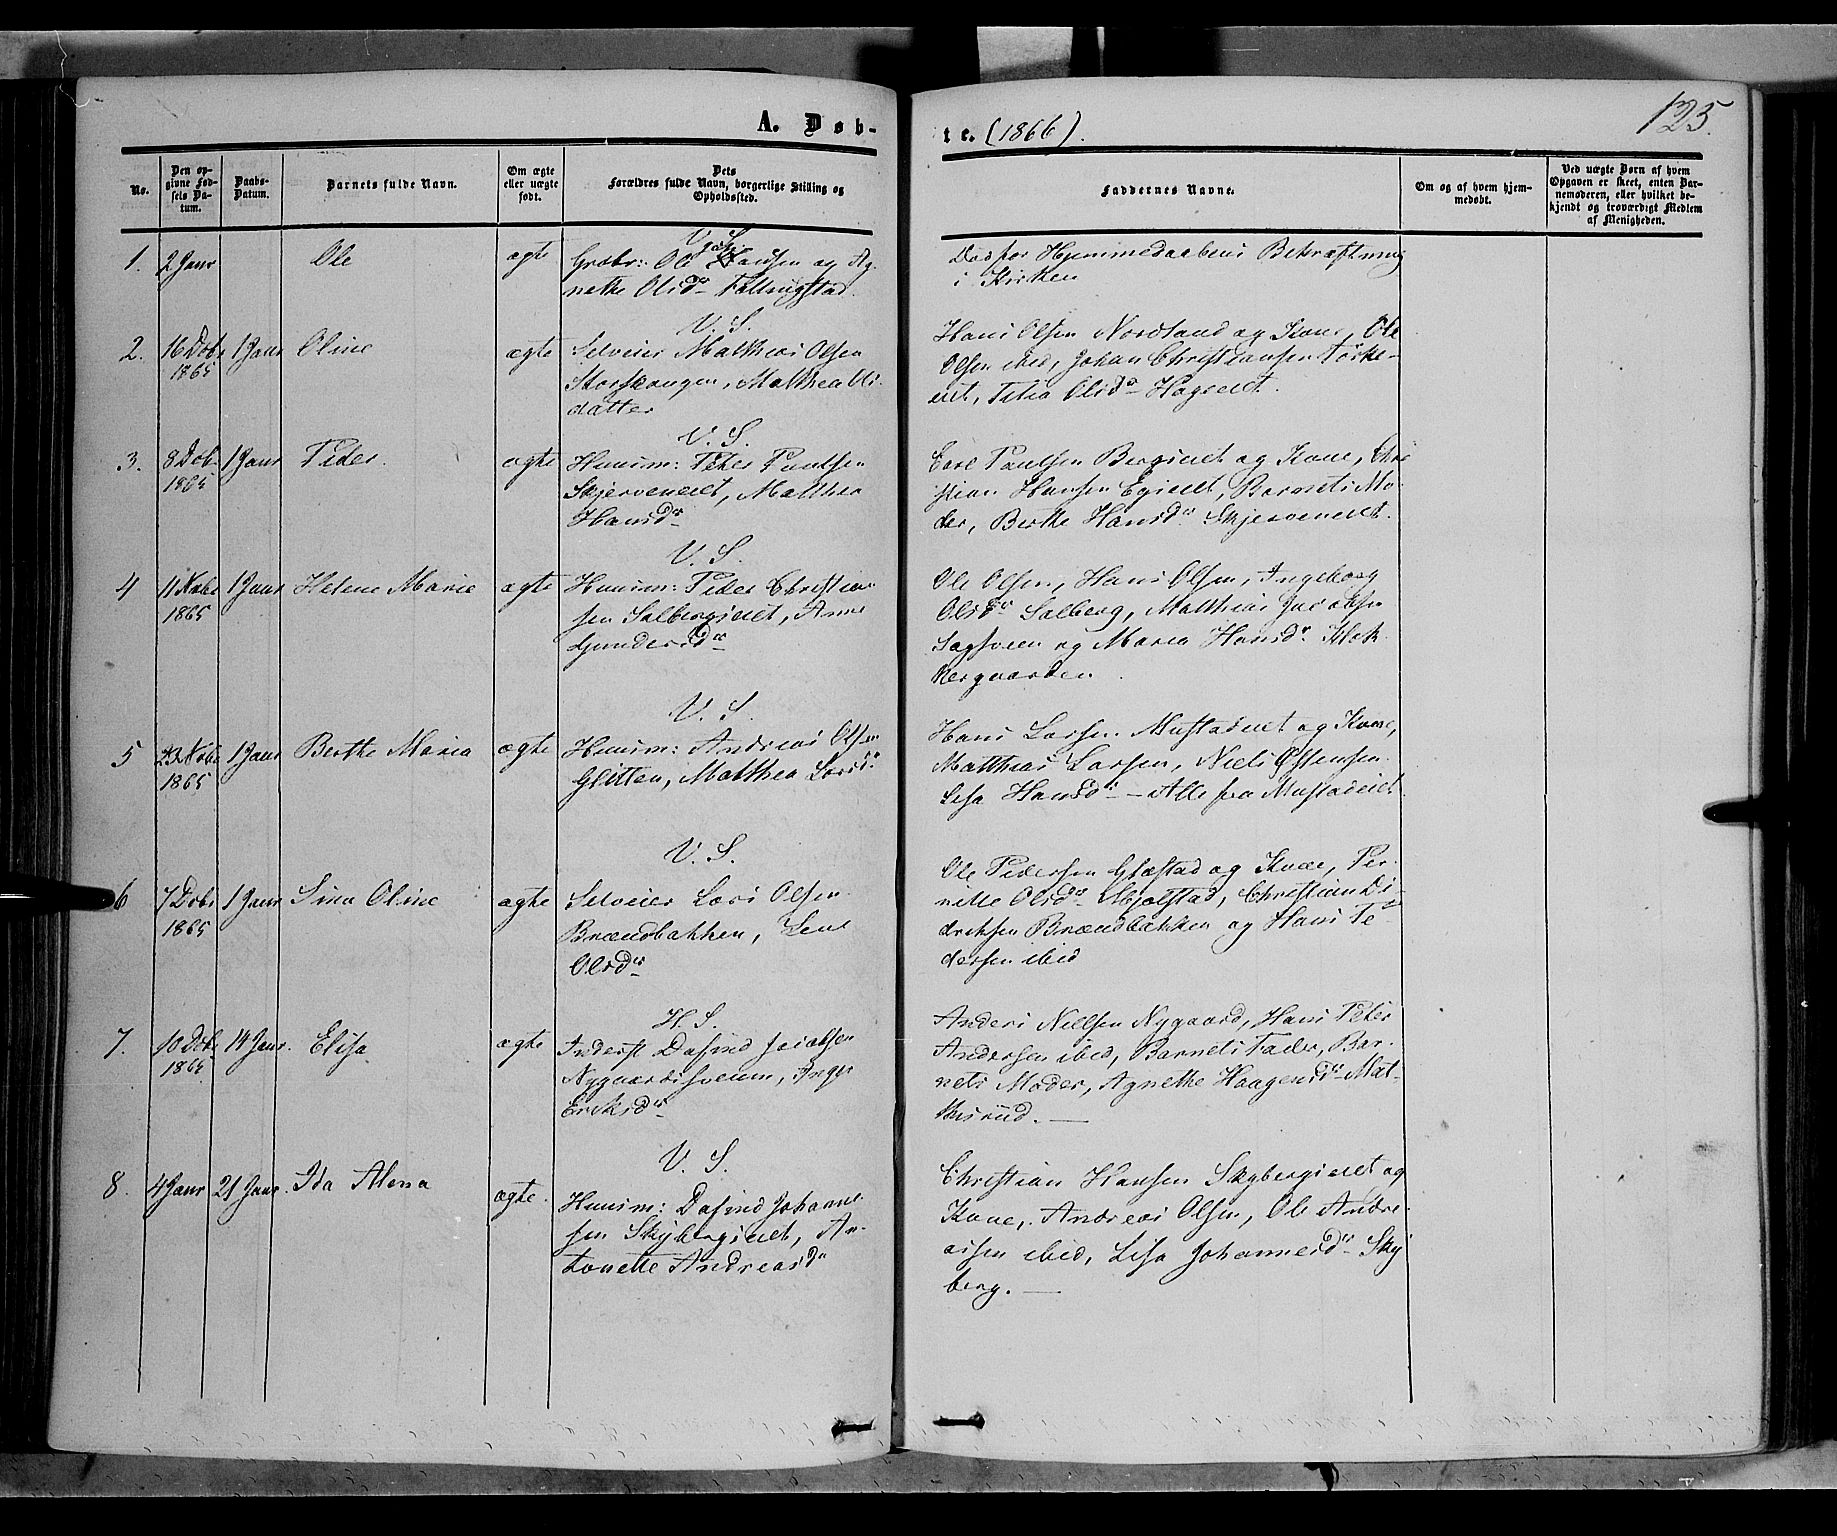 125.
A. Døb-
te. (1866).
No.
Den op-
givne Fød-
sels Da-
tum.
Daabs-
Datum.
Barnets fulde Navn.
Om ægte
eller uægte
født.
Dets
Forældres fulde Navn, borgerlige Stilling og
Opholdssted.
Faddernes Navne.
Om og af hvem hjem-
medøbt.
Ved uægte Børn af hvem
Opgaven er skeet, enten Bar-
nemoderen, eller hvilket be-
kjendt og troværdigt Medlem
af Menigheden.
V. S.
1. 2 Janr Ole ægte
Grdbr: Ole Hansen og Ag-
nethe Olsdr
Død før Hjemmedaabens Bekræftning
i Kirken
V. S.
2. 16 Dcbr 1 Janr Oline ægte
1865
Selveier Mathias Olsen
Storskougen, Mathea Ols-
datter
Hans Olsen Nordland og Kone, Ole
Olsen ibid, Johan Christiansen
eiet, Olsdr Hageeiet.
V. S.
3. 8 Dcbr 1 Janr Peder. ægte
1865
Huusm: Peter Paulsen
Skjerveneiet, Matthea
Hansdr
Carl Paulsen Bergseiet og Kone, Chri
stian Hansen Egseiet, Barnets Mo-
der, Berthe Hansdr Skjerveneiet.
V. S.
4 11 Novbr 1 Janr Helene Marie ægte
1865
Huusm: Peder Christian-
sen Salbergseiet, Anne
Gundersdr
Ole Olsen, Hans Olsen, Ingeborg
Olsdr Salberg, Matthias Jacobsen
Sagsveen og Maria Hansdr Klok-
kergaarden.
V. S.
5 23 Novbr 1 Janr Berthe Maria ægte
1865
Huusm: Andreas Olsen
Glitten, Matthea Larsdr
Hans Larsen Mustadeiet og Kone,
Matthias Larsen, Niels Østensen
Lisa Hansdr — Alle fra Mustadeiet
V. S.
6 7 Dcbr 1 Janr Sina Oline ægte
1865
Selveier Lars Olsen
Brændbakken, Lene
Olsdr
Ole Pedersen Glæstad og Kone, Per-
nille Olsdr Mjølstad, Christian Di-
driksen Brændbakken og Hans Pe-
dersen ibid
H. S.
7. 10 Dcbr 14 Janr. Elisa ægte
1865
Inderst Dafind Jacobsen
Nygaardssveen, Inger
Eriksdr
Anders Nielsen Nygaard, Hans Peter
Andersen ibid, Barnets Fader, Bar-
nets Moder, Agnethe Haagensdr Mat-
hisrud. —
V. S.
8. 4 Janr 21 Janr. Ida Alena ægte.
Huusm: Dafind Johanne
sen Skybergseiet, An-
tonette Andreasdr
Christian Hansen Skybergseiet og
Kone, Andreas Olsen, Ole Andre-
assen ibid, Lisa Johannesdr Sky
berg. —